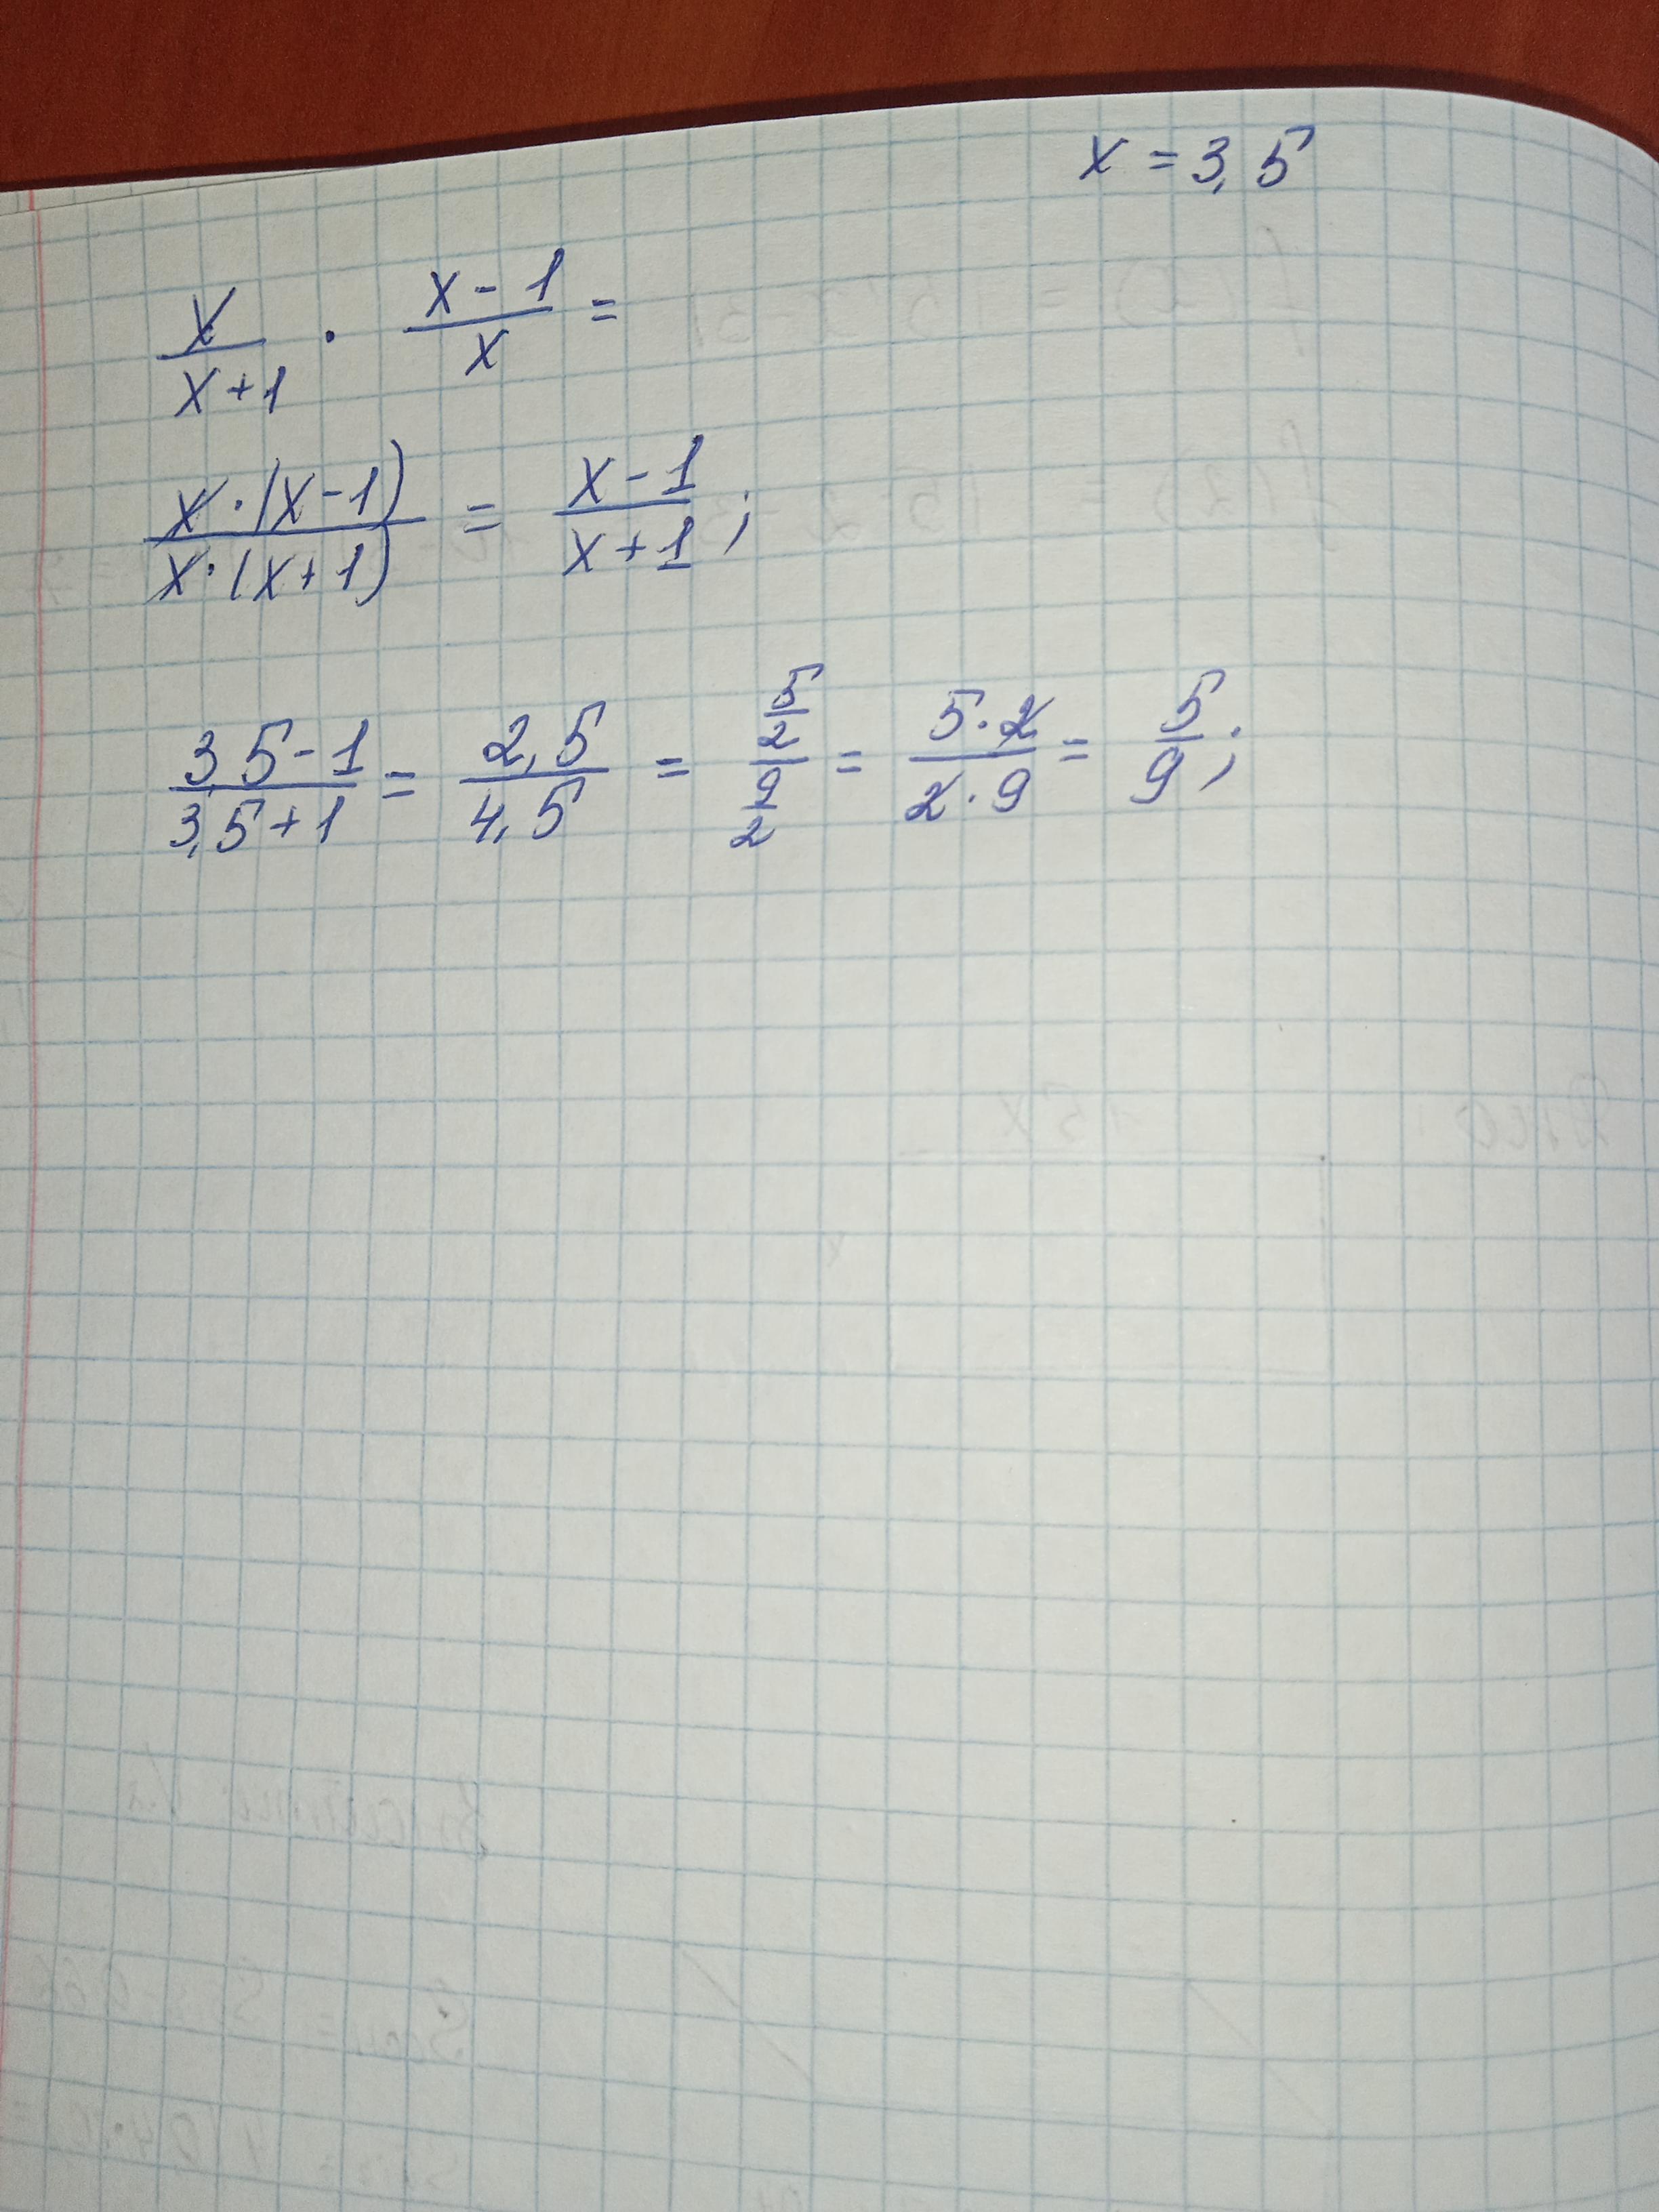 x = 3,5
x/(x+1) · (x-1)/x =
x·(x-1)/x·(x+1) = (x-1)/(x+1);
(3,5-1)/(3,5+1) = 2,5/4,5 = (5/2)/(9/2) = 5·2/2·9 = 5/9;